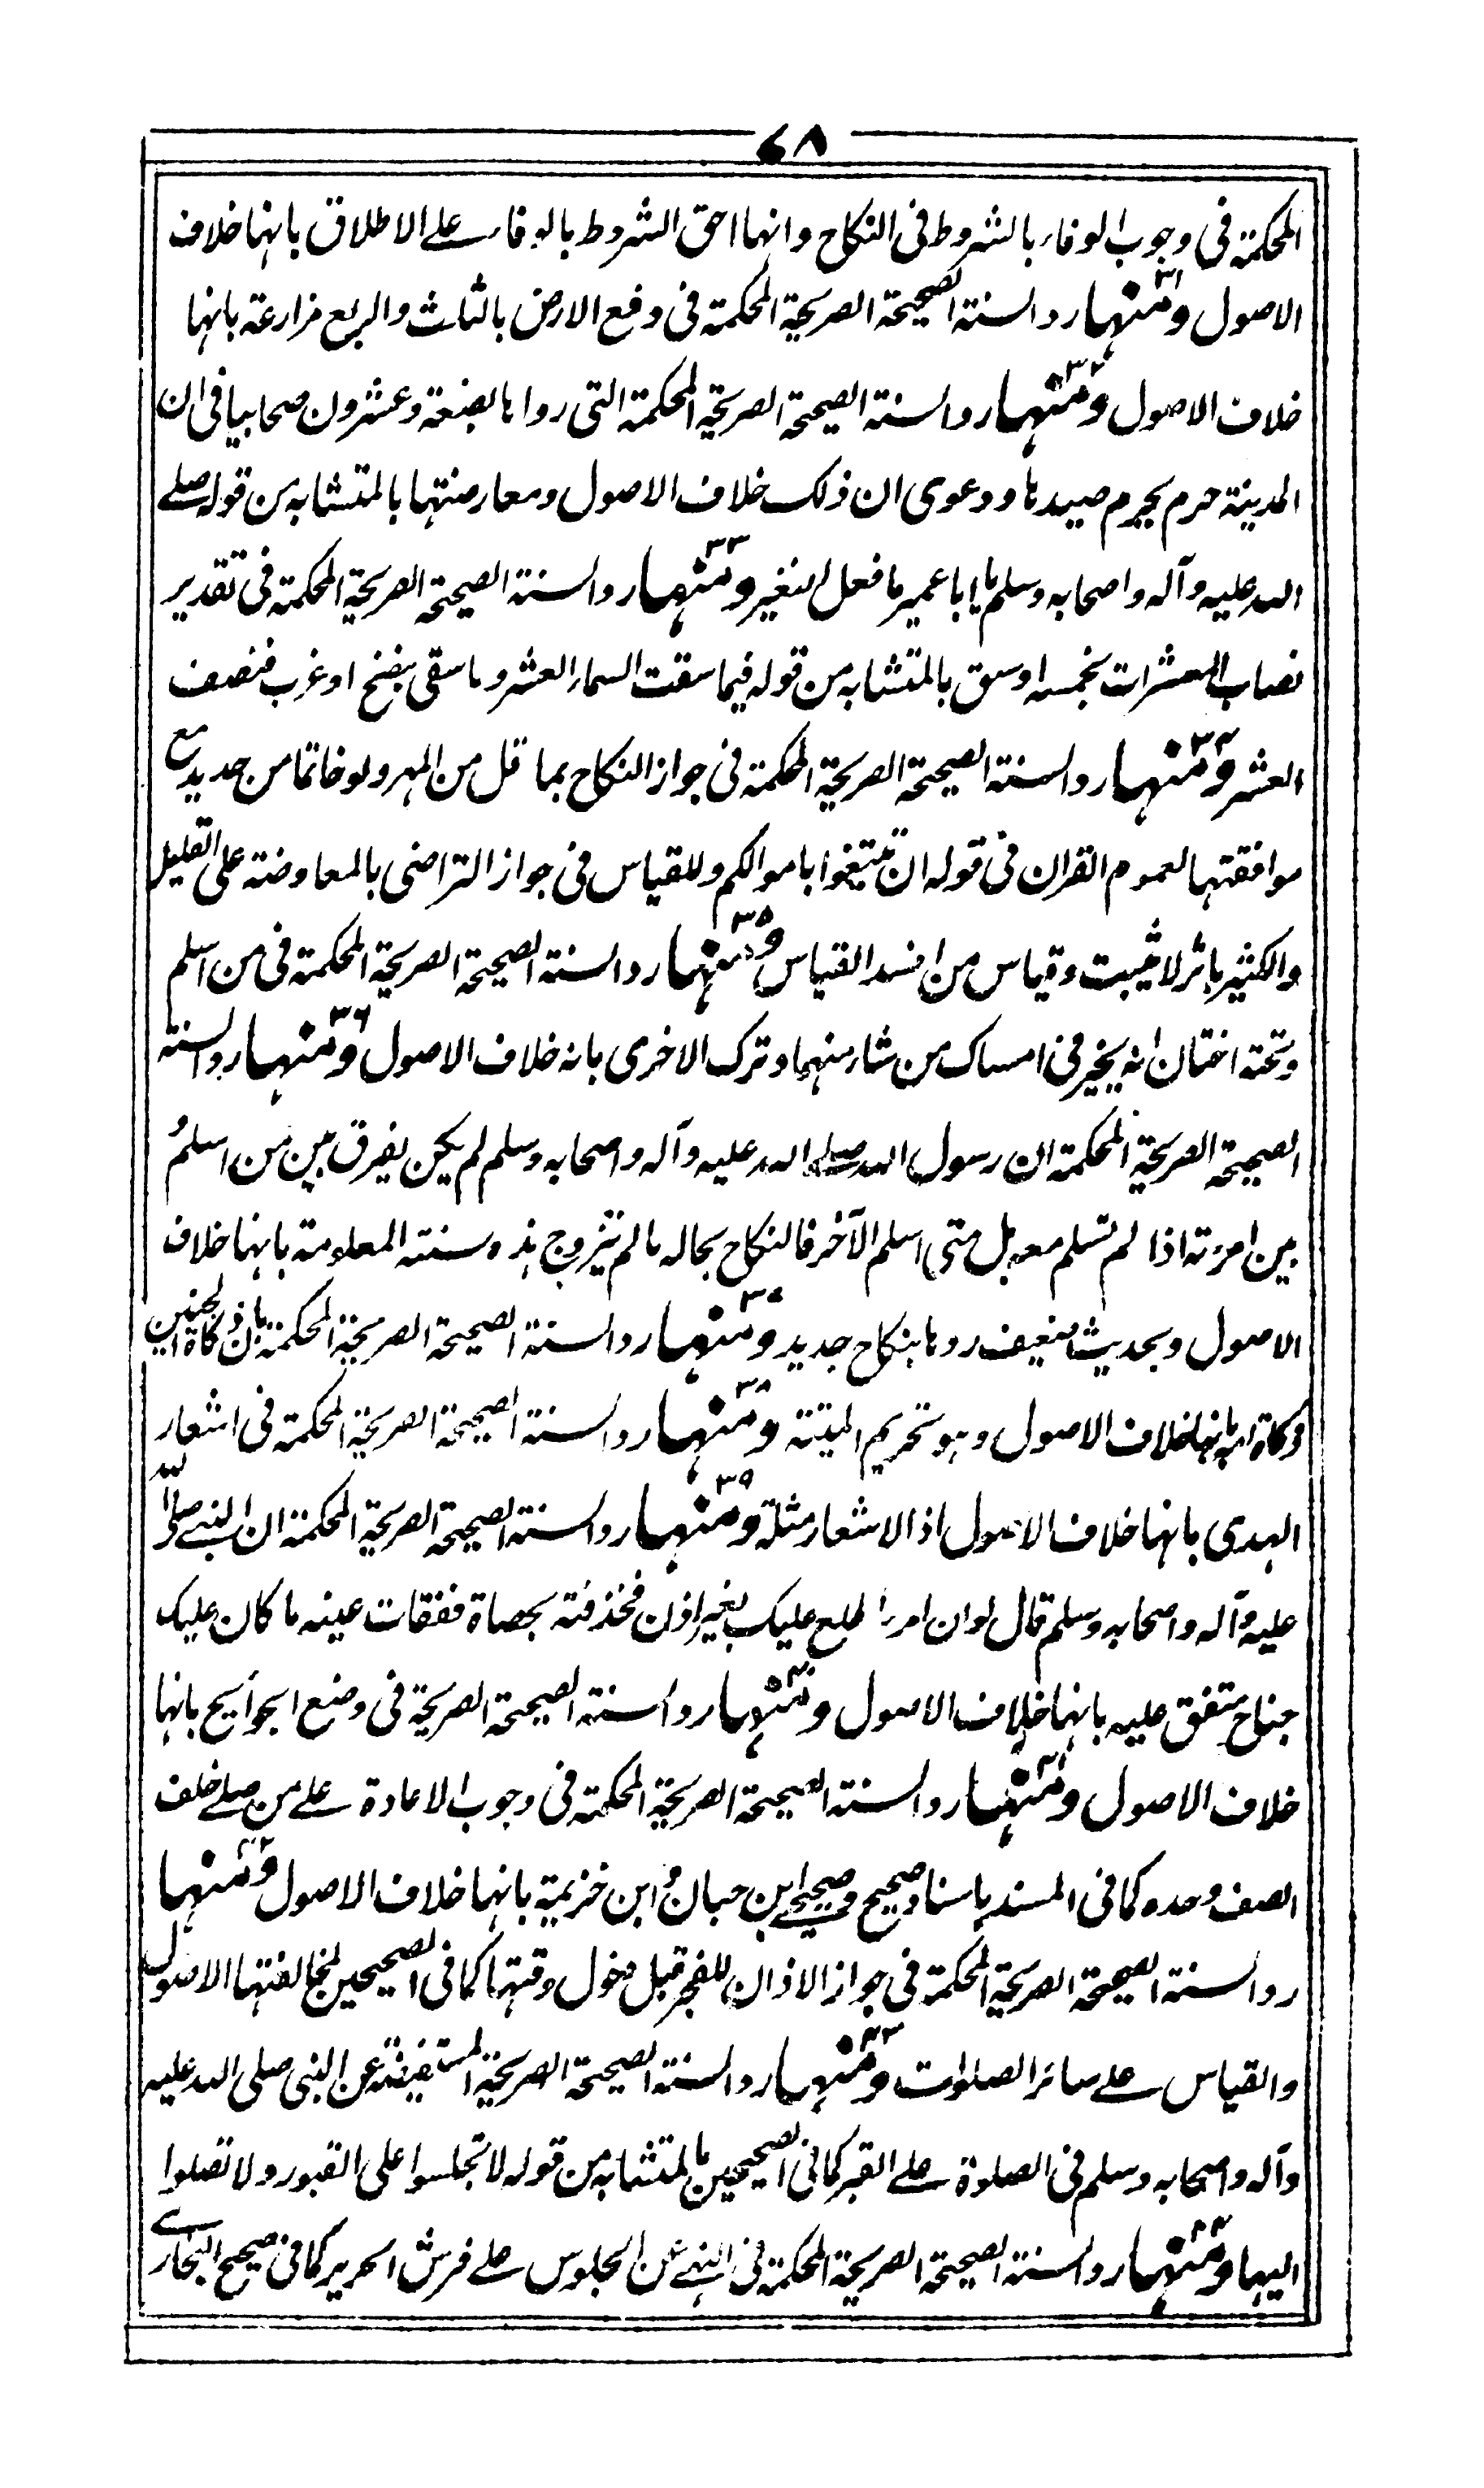 ٦٨
المحكمة فی وجوب الوفاء بالشروط فی النكاح وانها احق الشروط بالوفاء علے الاطلاق بانها خلاف
الاصول ومنها ٣١ رد السنة الصحيحة الصريحة المحكمة فی دفع الارض بالثلث والربع مزارعة بانها
خلاف الاصول ومنها ٣٢ رد السنة الصحيحة الصريحة المحكمة التی رواها بضعة وعشرون صحابيا فی ان
المدينة حرم يحرم صيدها ودعوی ان ذلك خلاف الاصول ومعارضتها بالمتشابه من قوله صلے
الله عليه وآله واصحابه وسلم يا ابا عمير ما فعل النغير ومنها ٣٣ رد السنة الصحيحة الصريحة المحكمة فی تقدير
نصاب المعشرات بخمسة اوسق بالمتشابه من قوله فيما سقت السماء العشر وما سقی بنضح او غرب فنصف
العشر ومنها ٣٤ رد السنة الصحيحة الصريحة المحكمة فی جواز النكاح بما قل من المهر ولو خاتما من حديد مع
موافقتها لعموم القران فی قوله ان تبتغوا باموالكم وللقياس فی جواز التراضی بالمعاوضة علی القليل
والكثير باثر لا يثبت وقياس من افسد القياس ومنها ٣٥ رد السنة الصحيحة الصريحة المحكمة فی من اسلم
وتحته اختان انه يخير فی امساك من شاء منهما وترك الاخری بانه خلاف الاصول ومنها ٣٦ رد السنة
الصحيحة الصريحة المحكمة ان رسول الله صلے الله عليه وآله واصحابه وسلم لم يكن يفرق بين من اسلم و
بين امرءته اذا لم تسلم معه بل متی اسلم الآخر فالنكاح بحاله ما لم تتزوج هذه سنته المعلومة بانها خلاف
الاصول وبحديث ضعيف ردها بنكاح جديد ومنها ٣٧ رد السنة الصحيحة الصريحة المحكمة بان ذكاة الجنين
ذكاة امه بانها خلاف الاصول وهو تحريم الميتة ومنها ٣٨ رد السنة الصحيحة الصريحة المحكمة فی اشعار
الهدی بانها خلاف الاصول اذ الاشعار مثلة ومنها ٣٩ رد السنة الصحيحة الصريحة المحكمة ان النبے صلی الله
عليه وآله واصحابه وسلم قال لو ان امرءا اطلع عليك بغير اذن فخذفته بحصاة ففقات عينه ما كان عليك
جناح متفق عليه بانها خلاف الاصول ومنها ٤٠ رد السنة الصحيحة الصريحة فی وضع الجوايح بانها
خلاف الاصول ومنها ٤١ رد السنة الصحيحة الصريحة المحكمة فی وجوب الاعادة علے من صلے خلف
الصف وحده كما فی المسند باسناد صحيح وصحيحے ابن حبان و ابن خزيمة بانها خلاف الاصول ومنها ٤٢
رد السنة الصحيحة الصريحة المحكمة فی جواز الاذان للفجر قبل دخول وقتها كما فی الصحيحين لمخالفتها الاصول
والقياس علے سائر الصلوات ومنها ٤٣ رد السنة الصحيحة الصريحة المستفيضة عن النبی صلی الله عليه
وآله واصحابه وسلم فی الصلوة علے القبر كما فی الصحيحين بالمتشابه من قوله لا تجلسوا علی القبور ولا تصلوا
اليها ومنها ٤٤ رد السنة الصحيحة الصريحة المحكمة فی النهے عن الجلوس علے فرش الحرير كما فی صحيح البخارے